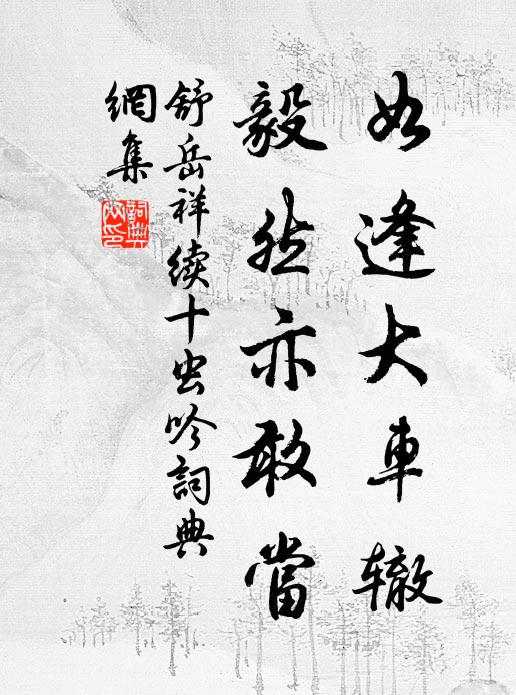 如逢大車辙
毅然亦敢當
舒岳祥续十虫吟詞典
網集